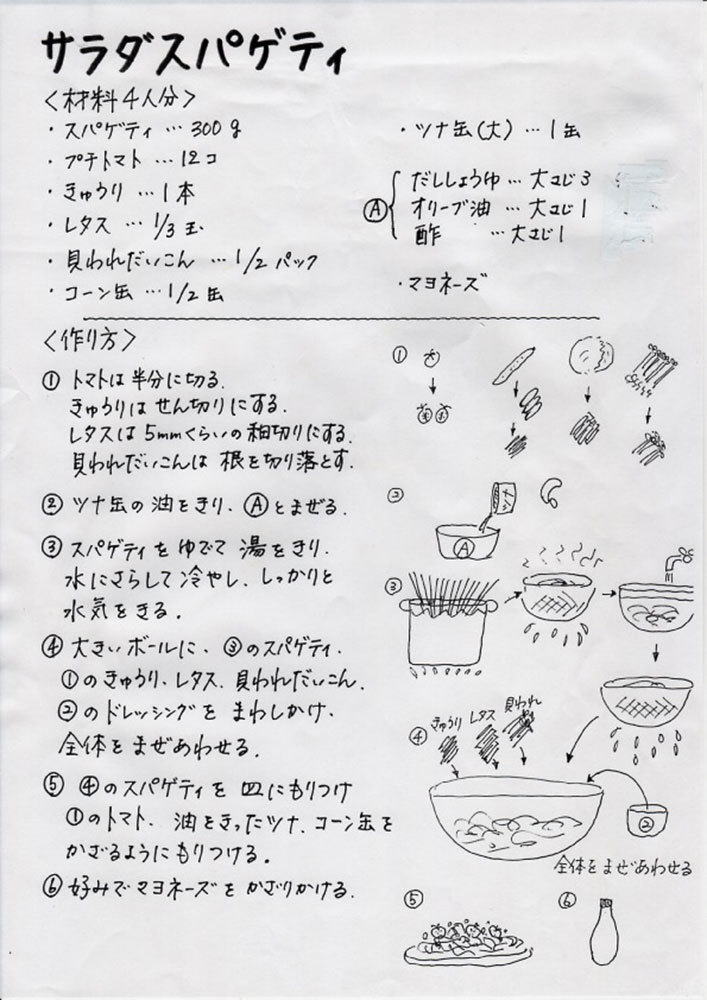 サラダスパゲティ
<材料4人分>
・スパゲティ…300g
・プチトマト…12コ
・きゅうり…1本
・レタス…1/3玉
・貝われだいこん…1/2パック
・コーン缶…1/2缶
・ツナ缶(大)…1缶
Ⓐ
だししょうゆ…大さじ3
オリーブ油…大さじ1
酢…大さじ1
・マヨネーズ
<作り方>
① トマトは半分に切る.
きゅうりはせん切りにする.
レタスは5mmくらいの細切りにする.
貝われだいこんは根を切り落とす.
② ツナ缶の油をきり、Ⓐとまぜる.
③ スパゲティをゆでて湯をきり、
水にさらして冷やし、しっかりと
水気をきる.
④ 大きいボールに、③のスパゲティ、
①のきゅうり、レタス、貝われだいこん、
②のドレッシングをまわしかけ、
全体をまぜあわせる.
⑤ ④のスパゲティを皿にもりつけ
①のトマト、油をきったツナ、コーン缶を
かざるようにもりつける。
⑥ 好みでマヨネーズをかざりかける.
①
②
ツナ
Ⓐ
③
④
きゅうり レタス 貝われ
②
全体をまぜあわせる
⑤
⑥